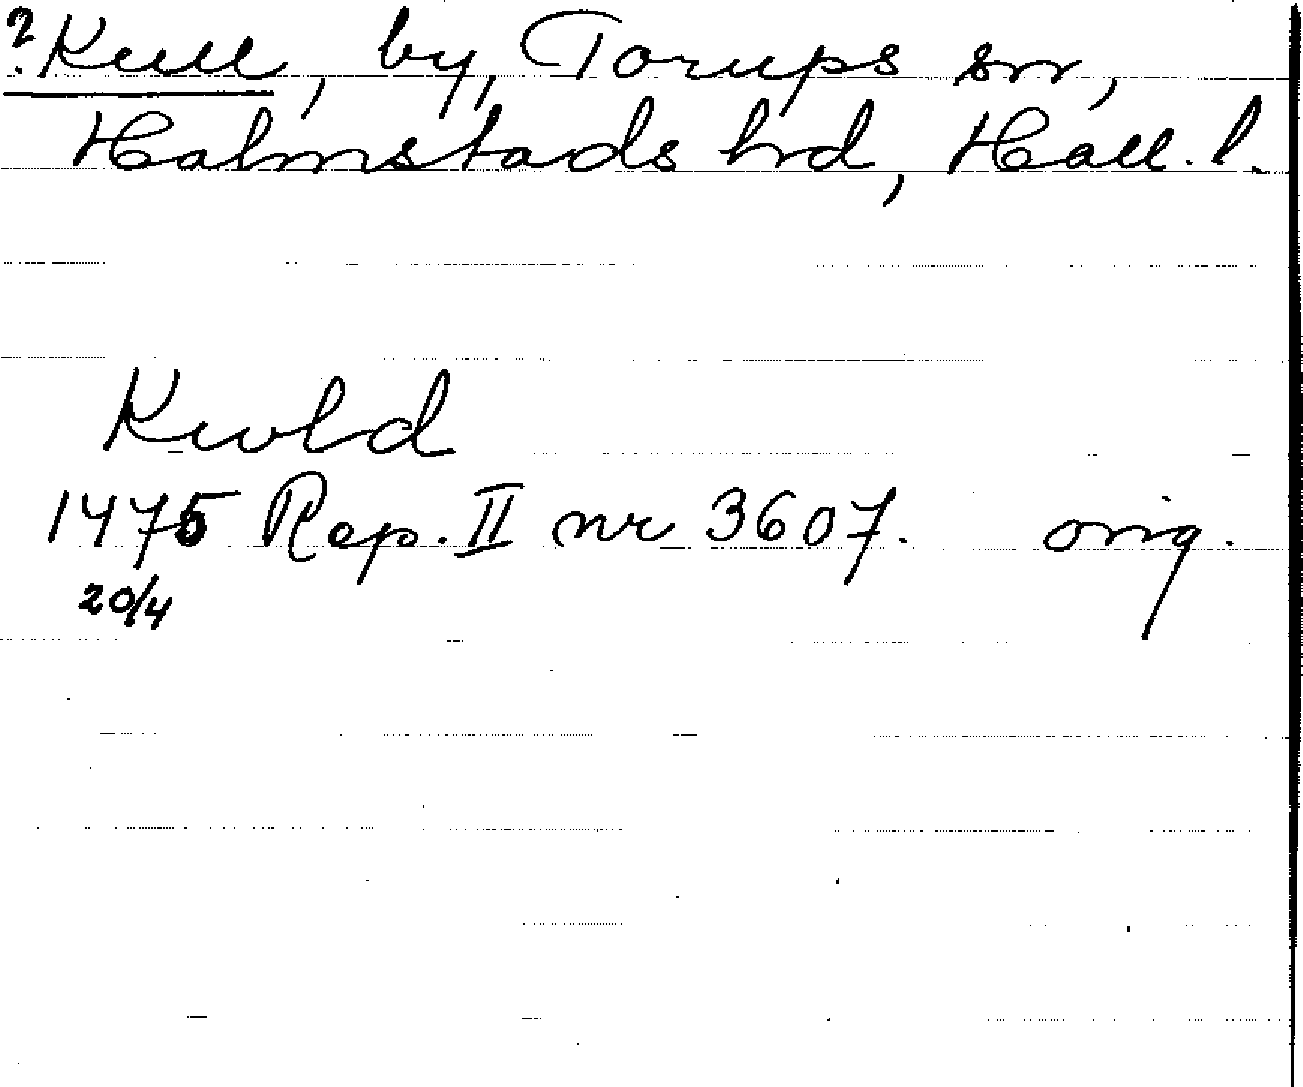 ? Kull, by, Torups sn,
Halmstads hrd, Hall. l.
Kwld
1475 Rep. II nr 3607. orig.
20/4